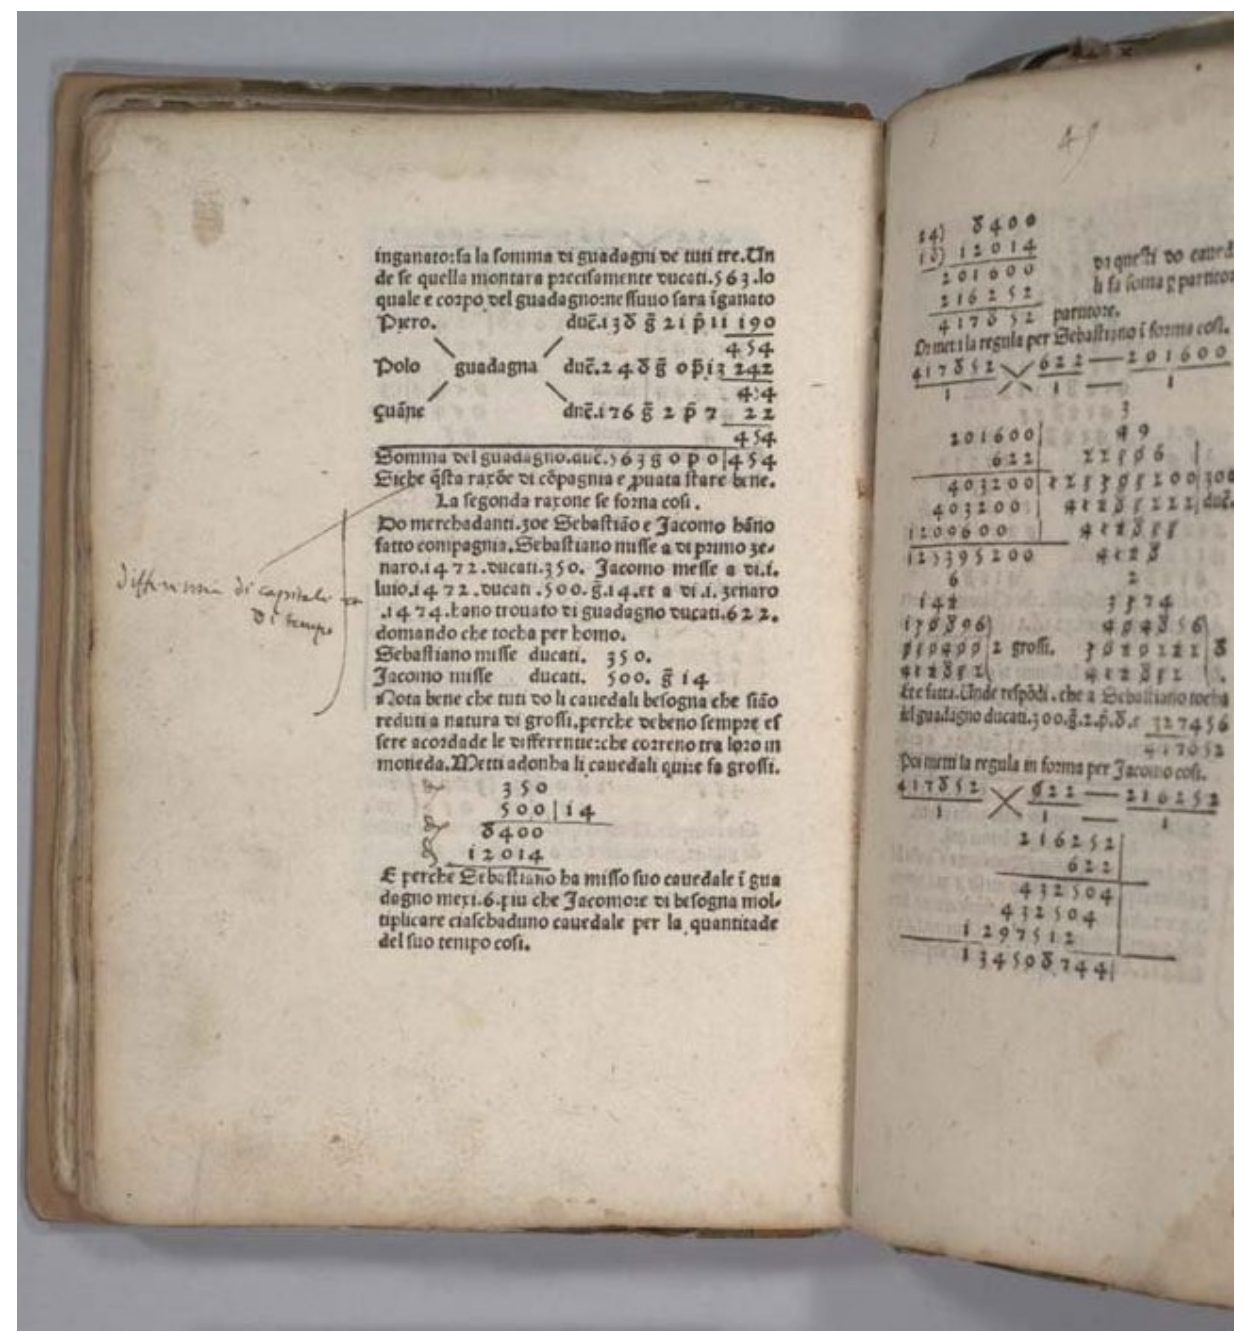 inganato:fa la somma di guadagni de tuti tre.Un
de se quella montara precisamente ducati.563.lo
quale e corpo del guadagno:nessuno sara īganato
Piero. duc̄.138 ḡ 21 p̄ 11 190
454
Polo guadagna duc̄.248 ḡ 0 p̄ 13 242
454
çuāne duc̄.176 ḡ 2 p̄ 7 22
454
Somma del guadagno.duc̄.563 g 0 p 0|454
Siche q̄sta raxōe di cōpagnia e ꝓuata stare bene.
La segonda raxone se forma cosi.
Do merchadanti.zoe Sebastiāo e Jacomo hāno
fatto compagnia.Sebastiano misse a di primo ze-
naro.1472.ducati.350. Jacomo messe a di.1.
luio.1472.ducati.500.ḡ.14.et a di.1.zenaro
.1474.hano trouato di guadagno ducati.622.
domando che tocha per homo.
Sebastiano misse ducati. 350.
Jacomo misse ducati. 500. ḡ 14
Nota bene che tuti do li cauedali besogna che siāo
reduti a natura di grossi,perche debeno sempre es
sere acordade le differentie:che correno tra loro in
moneda.Metti adonha li cauedali quire fa grossi.
350
500|14
8400
12014
E perche Sebastiano ha misso suo cauedale ī gua
dagno mexi.6.piu che Jacomo:e di besogna mol-
tiplicare ciaschaduno cauedale per la quantitade
del suo tempo cosi.
di capitali
di tempo
49
24) 8400
18) 12014
201600
216252
417852
di questi do caued
li fa soma ꝑ partitor
partitore.
Di metti la regula per Sebastiano ī forma cosi.
417852 622 — 201600
1 1 — 1
3
201600| 49
622|
403200|
403200|
1209600|
125395200
6 2
grossi.
Et e fatta.Unde respōdi.che a Sebastiano tocha
del guadagno ducati.300.ḡ.2.p̄.8.e 327456
417852
Poi metti la regula in forma per Jacomo cosi.
417852 622 — 216252
1 1 — 1
216252|
622|
432504
432504
1297512
134508744|